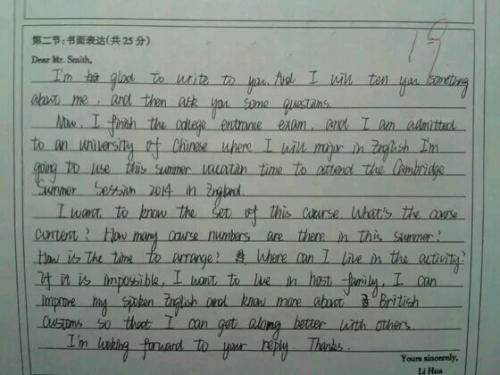 第二节：书面表达(共25分)
19
Dear Mr. Smith,
I'm glad to write to you. And I will tell you something
about me, and then ask you some questions.
Now, I finish the college entrance exam, and I am admitted
to an university of Chinese where I will major in English I'm
going to use this summer vacation time to attend the Cambridge
Summer Session 2014 in England.
I want to know the set of this course. What's the course
content? How many course numbers are there in this summer?
How is the time to arrange? Where can I live in the activity?
If it is impossible, I want to live in host family, I can
improve my spoken English and know more about British
customs so that I can get along better with others.
I'm looking forward to your reply Thanks.
Yours sincerely,
Li Hua